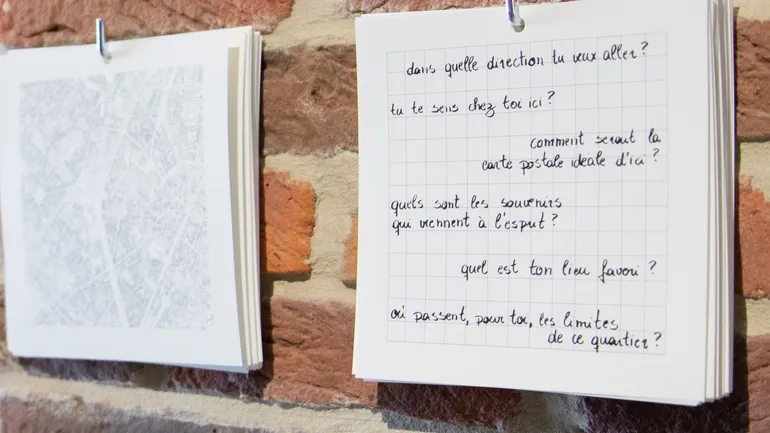 dans quelle direction tu veux aller?
tu te sens chez toi ici?
comment serait la
carte postale idéale d'ici?
quels sont les souvenirs
qui viennent à l'esprit?
quel est ton lieu favori?
où passent, pour toi, les limites
de ce quartier?